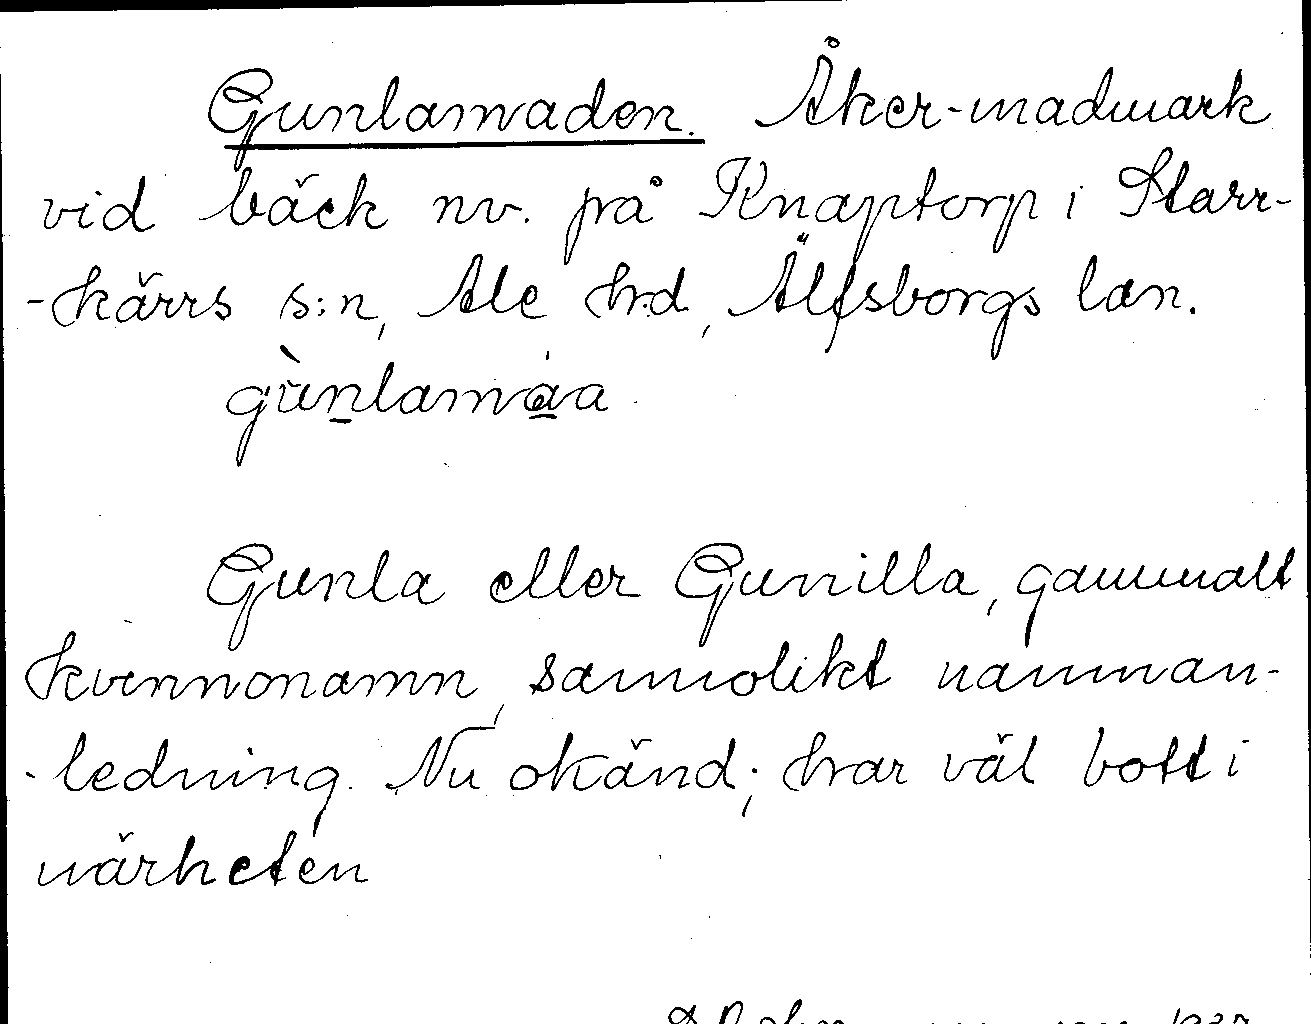 Gunlamaden. Åker-madmark
vid bäck nv. på Knaptorp i Starr-
-kärrs s:n, Ale h:d, Älfsborgs län.
gùnlamáa
Gunla eller Gunilla, gammalt
kvinnonamn, sannolikt namnan-
-ledning. Nu okänd; har väl bott i
närheten